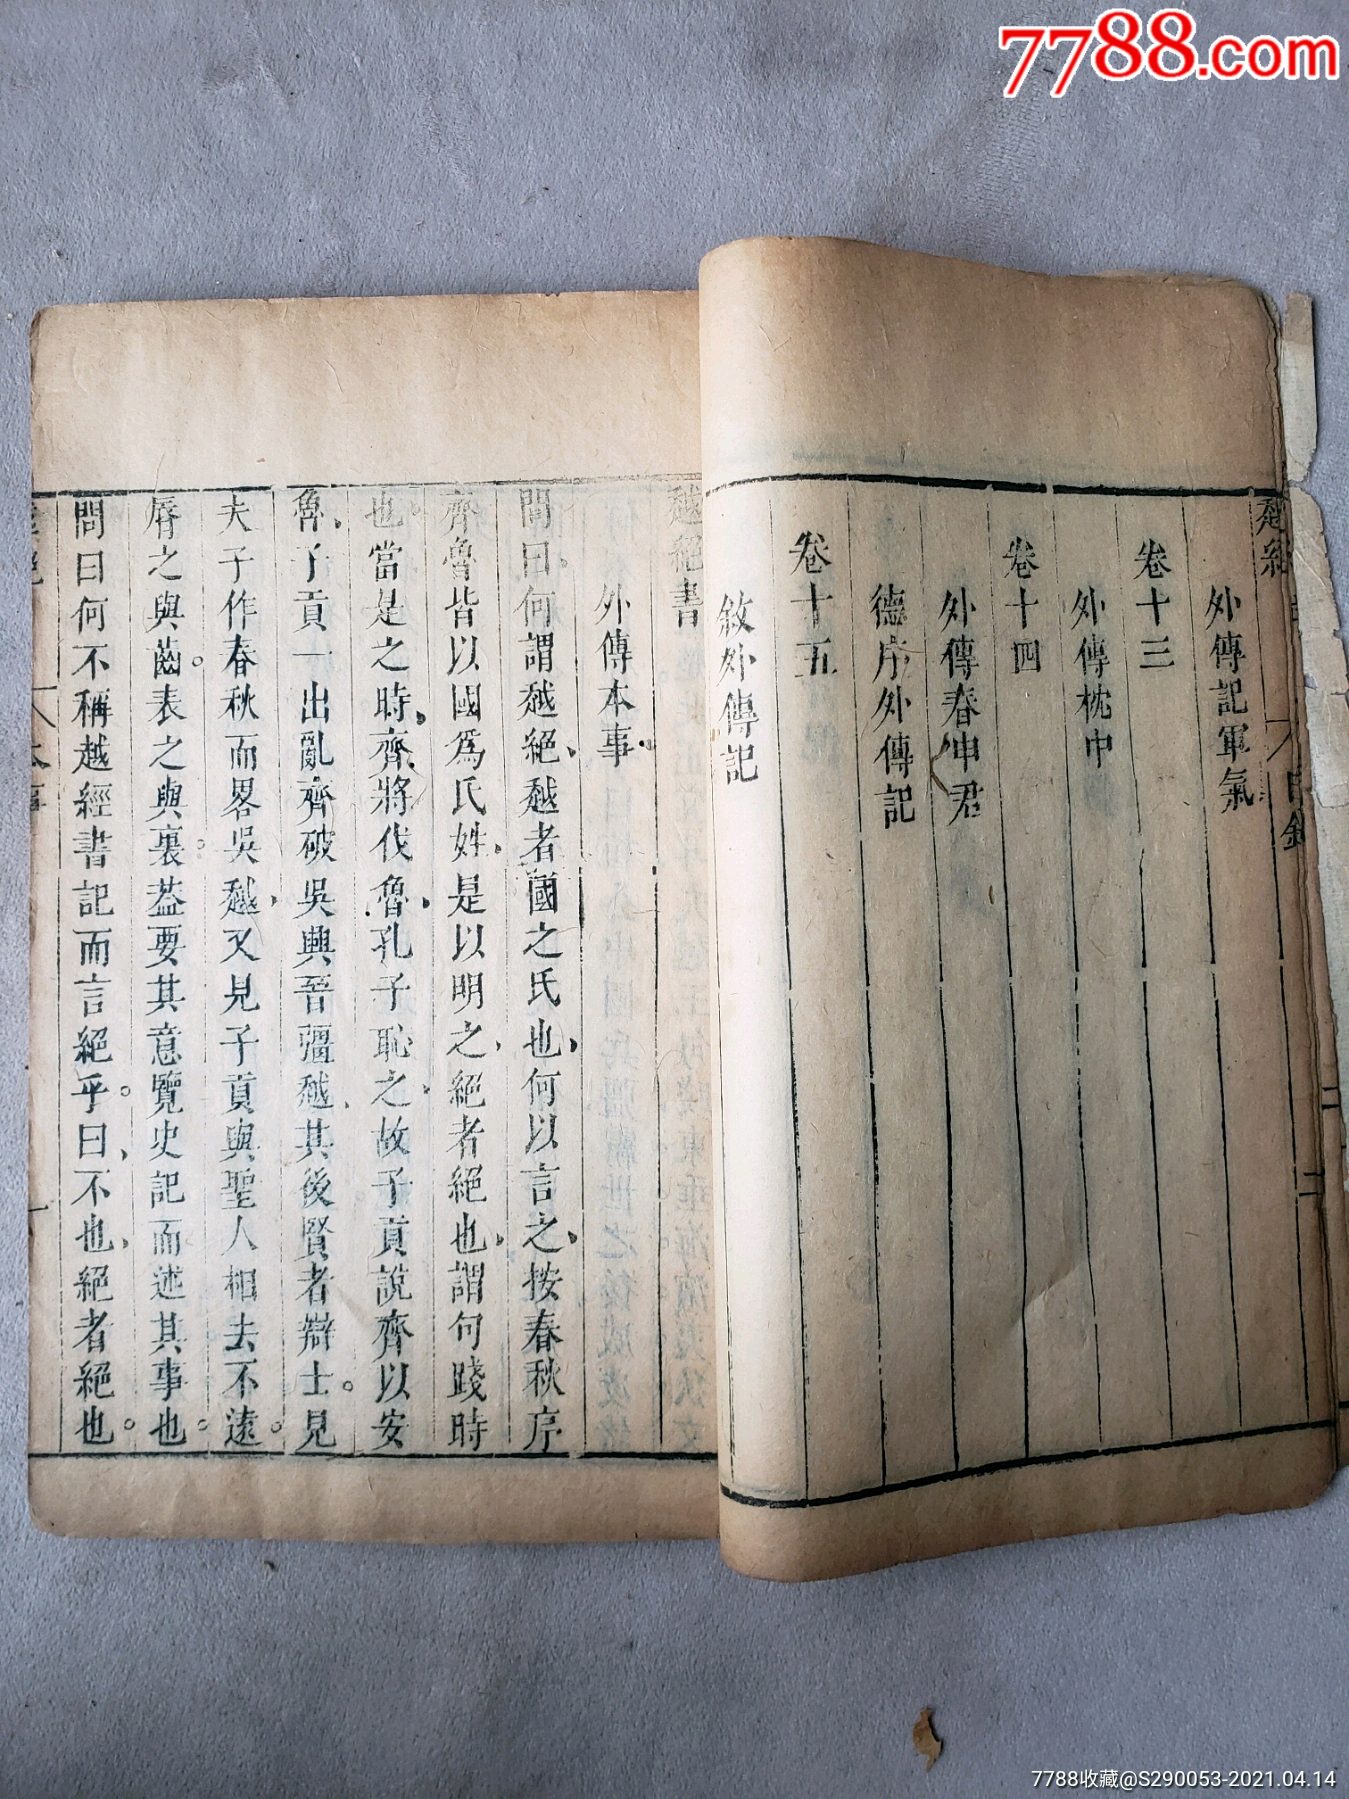 7788.com
外傳記軍氣
卷十三
外傳枕中
卷十四
外傳春申君
德序外傳記
卷十五
敘外傳記
越絕書
外傳本事
問曰何謂越絕越者國之氏也何以言之按春秋序
齊魯皆以國爲氏姓是以明之絕者絕也謂句踐時
也當是之時齊將伐魯孔子恥之故子貢說齊以安
魯子貢一出亂齊破吳興晉彊越其後賢者辯士見
夫子作春秋而畧吳越又見子貢與聖人相去不遠
脣之與齒表之與裏葢要其意覽史記而述其事也
問曰何不稱越經書記而言絕乎曰不也絕者絕也
7788收藏@S290053-2021.04.14